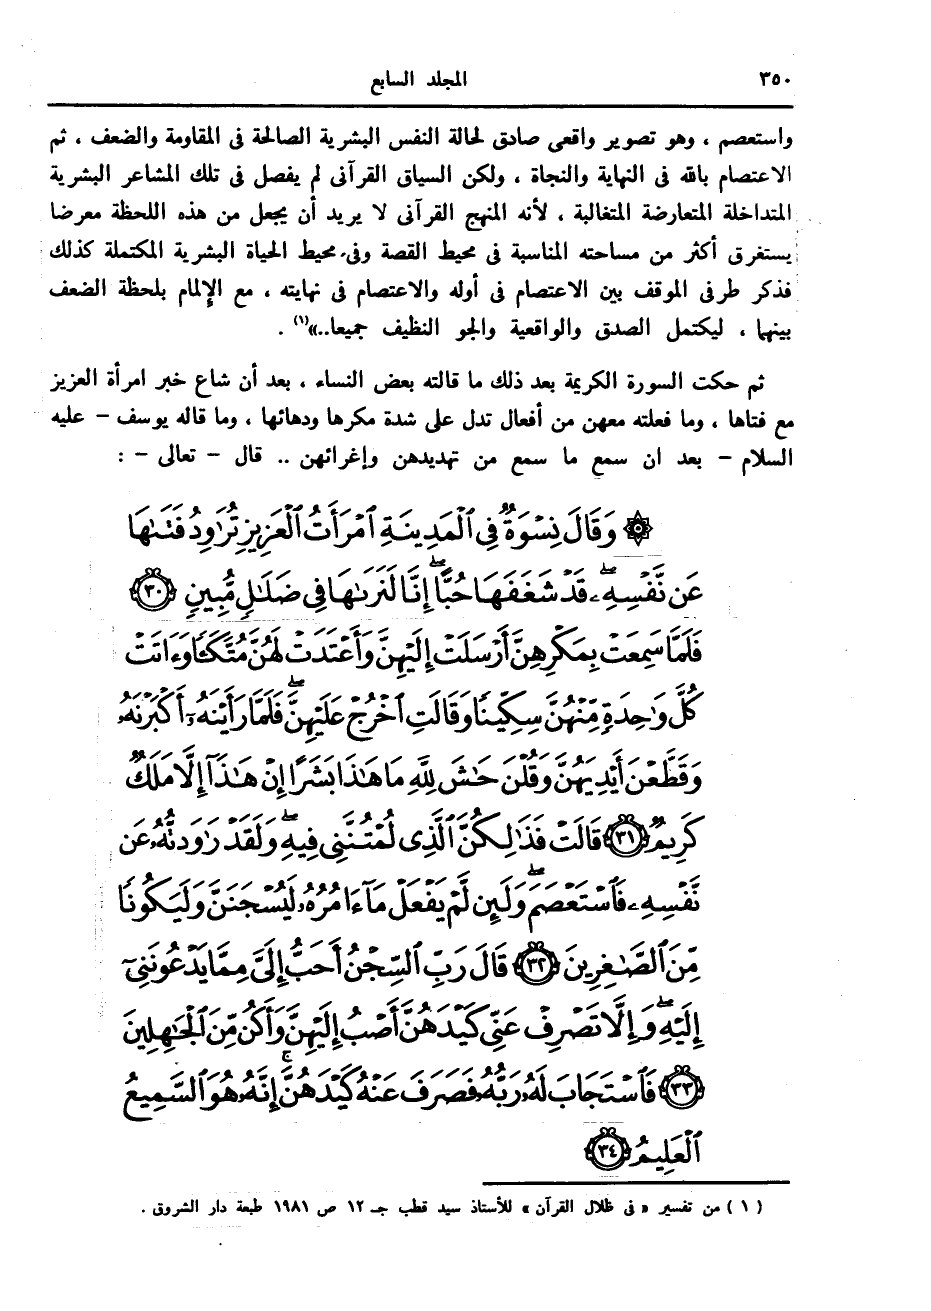 ٣٥٠ المجلد السابع
واستعصم ، وهو تصوير واقعى صادق لحالة النفس البشرية الصالحة فى المقاومة والضعف ، ثم
الاعتصام بالله فى النهاية والنجاة ، ولكن السياق القرآنى لم يفصل فى تلك المشاعر البشرية
المتداخلة المتعارضة المتغالبة ، لأنه المنهج القرآنى لا يريد أن يجعل من هذه اللحظة معرضا
يستغرق أكثر من مساحته المناسبة فى محيط القصة وفى محيط الحياة البشرية المكتملة كذلك
فذكر طرفى الموقف بين الاعتصام فى أوله والاعتصام فى نهايته ، مع الإلمام بلحظة الضعف
بينهما ، ليكتمل الصدق والواقعية والجو النظيف جميعا..»(١) .
ثم حكت السورة الكريمة بعد ذلك ما قالته بعض النساء ، بعد أن شاع خبر امرأة العزيز
مع فتاها ، وما فعلته معهن من أفعال تدل على شدة مكرها ودهائها ، وما قاله يوسف – عليه
السلام – بعد ان سمع ما سمع من تهديدهن وإغرائهن .. قال – تعالى – :
۞ وَقَالَ نِسْوَةٌ فِى ٱلْمَدِينَةِ ٱمْرَأَتُ ٱلْعَزِيزِ تُرَٰوِدُ فَتَىٰهَا
عَن نَّفْسِهِۦ ۖ قَدْ شَغَفَهَا حُبًّا ۖ إِنَّا لَنَرَىٰهَا فِى ضَلَـٰلٍ مُّبِينٍ ٣٠
فَلَمَّا سَمِعَتْ بِمَكْرِهِنَّ أَرْسَلَتْ إِلَيْهِنَّ وَأَعْتَدَتْ لَهُنَّ مُتَّكَـًٔا وَءَاتَتْ
كُلَّ وَٰحِدَةٍ مِّنْهُنَّ سِكِّينًا وَقَالَتِ ٱخْرُجْ عَلَيْهِنَّ ۖ فَلَمَّا رَأَيْنَهُۥٓ أَكْبَرْنَهُۥ
وَقَطَّعْنَ أَيْدِيَهُنَّ وَقُلْنَ حَـٰشَ لِلَّهِ مَا هَـٰذَا بَشَرًا إِنْ هَـٰذَآ إِلَّا مَلَكٌ
كَرِيمٌ ٣١ قَالَتْ فَذَٰلِكُنَّ ٱلَّذِى لُمْتُنَّنِى فِيهِ ۖ وَلَقَدْ رَٰوَدتُّهُۥ عَن
نَّفْسِهِۦ فَٱسْتَعْصَمَ ۖ وَلَئِن لَّمْ يَفْعَلْ مَآ ءَامُرُهُۥ لَيُسْجَنَنَّ وَلَيَكُونًا
مِّنَ ٱلصَّـٰغِرِينَ ٣٢ قَالَ رَبِّ ٱلسِّجْنُ أَحَبُّ إِلَىَّ مِمَّا يَدْعُونَنِىٓ
إِلَيْهِ ۖ وَإِلَّا تَصْرِفْ عَنِّى كَيْدَهُنَّ أَصْبُ إِلَيْهِنَّ وَأَكُن مِّنَ ٱلْجَـٰهِلِينَ
٣٣ فَٱسْتَجَابَ لَهُۥ رَبُّهُۥ فَصَرَفَ عَنْهُ كَيْدَهُنَّ ۚ إِنَّهُۥ هُوَ ٱلسَّمِيعُ
ٱلْعَلِيمُ ٣٤
( ١ ) من تفسير « فى ظلال القرآن » للأستاذ سيد قطب جـ ١٢ ص ١٩٨١ طبعة دار الشروق .